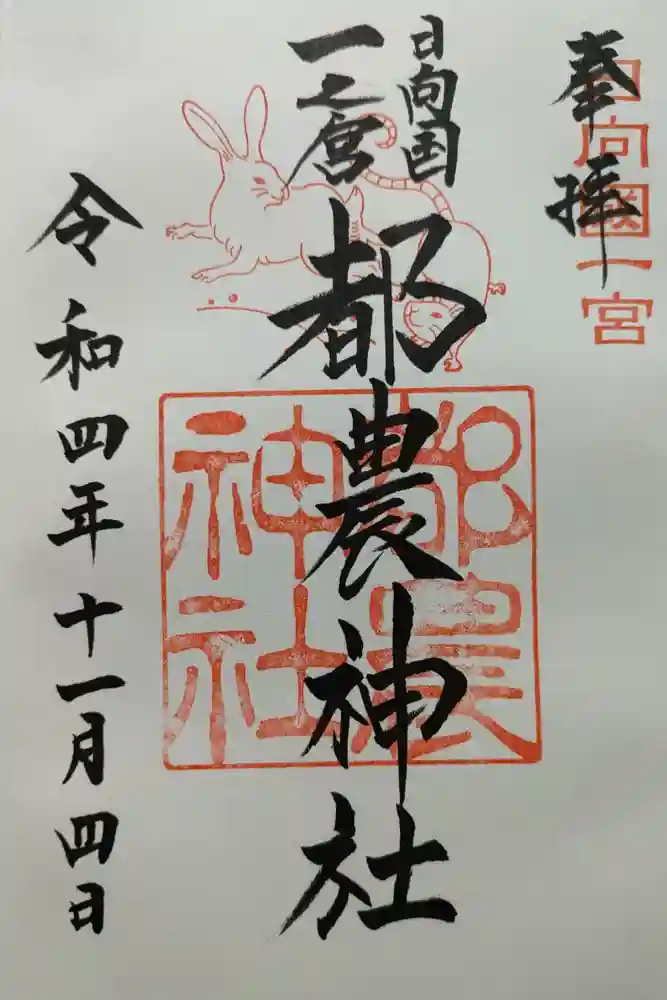 奉拝
日向國一宮
日向国
一之宮
都農神社
都農神社
令和四年十一月四日